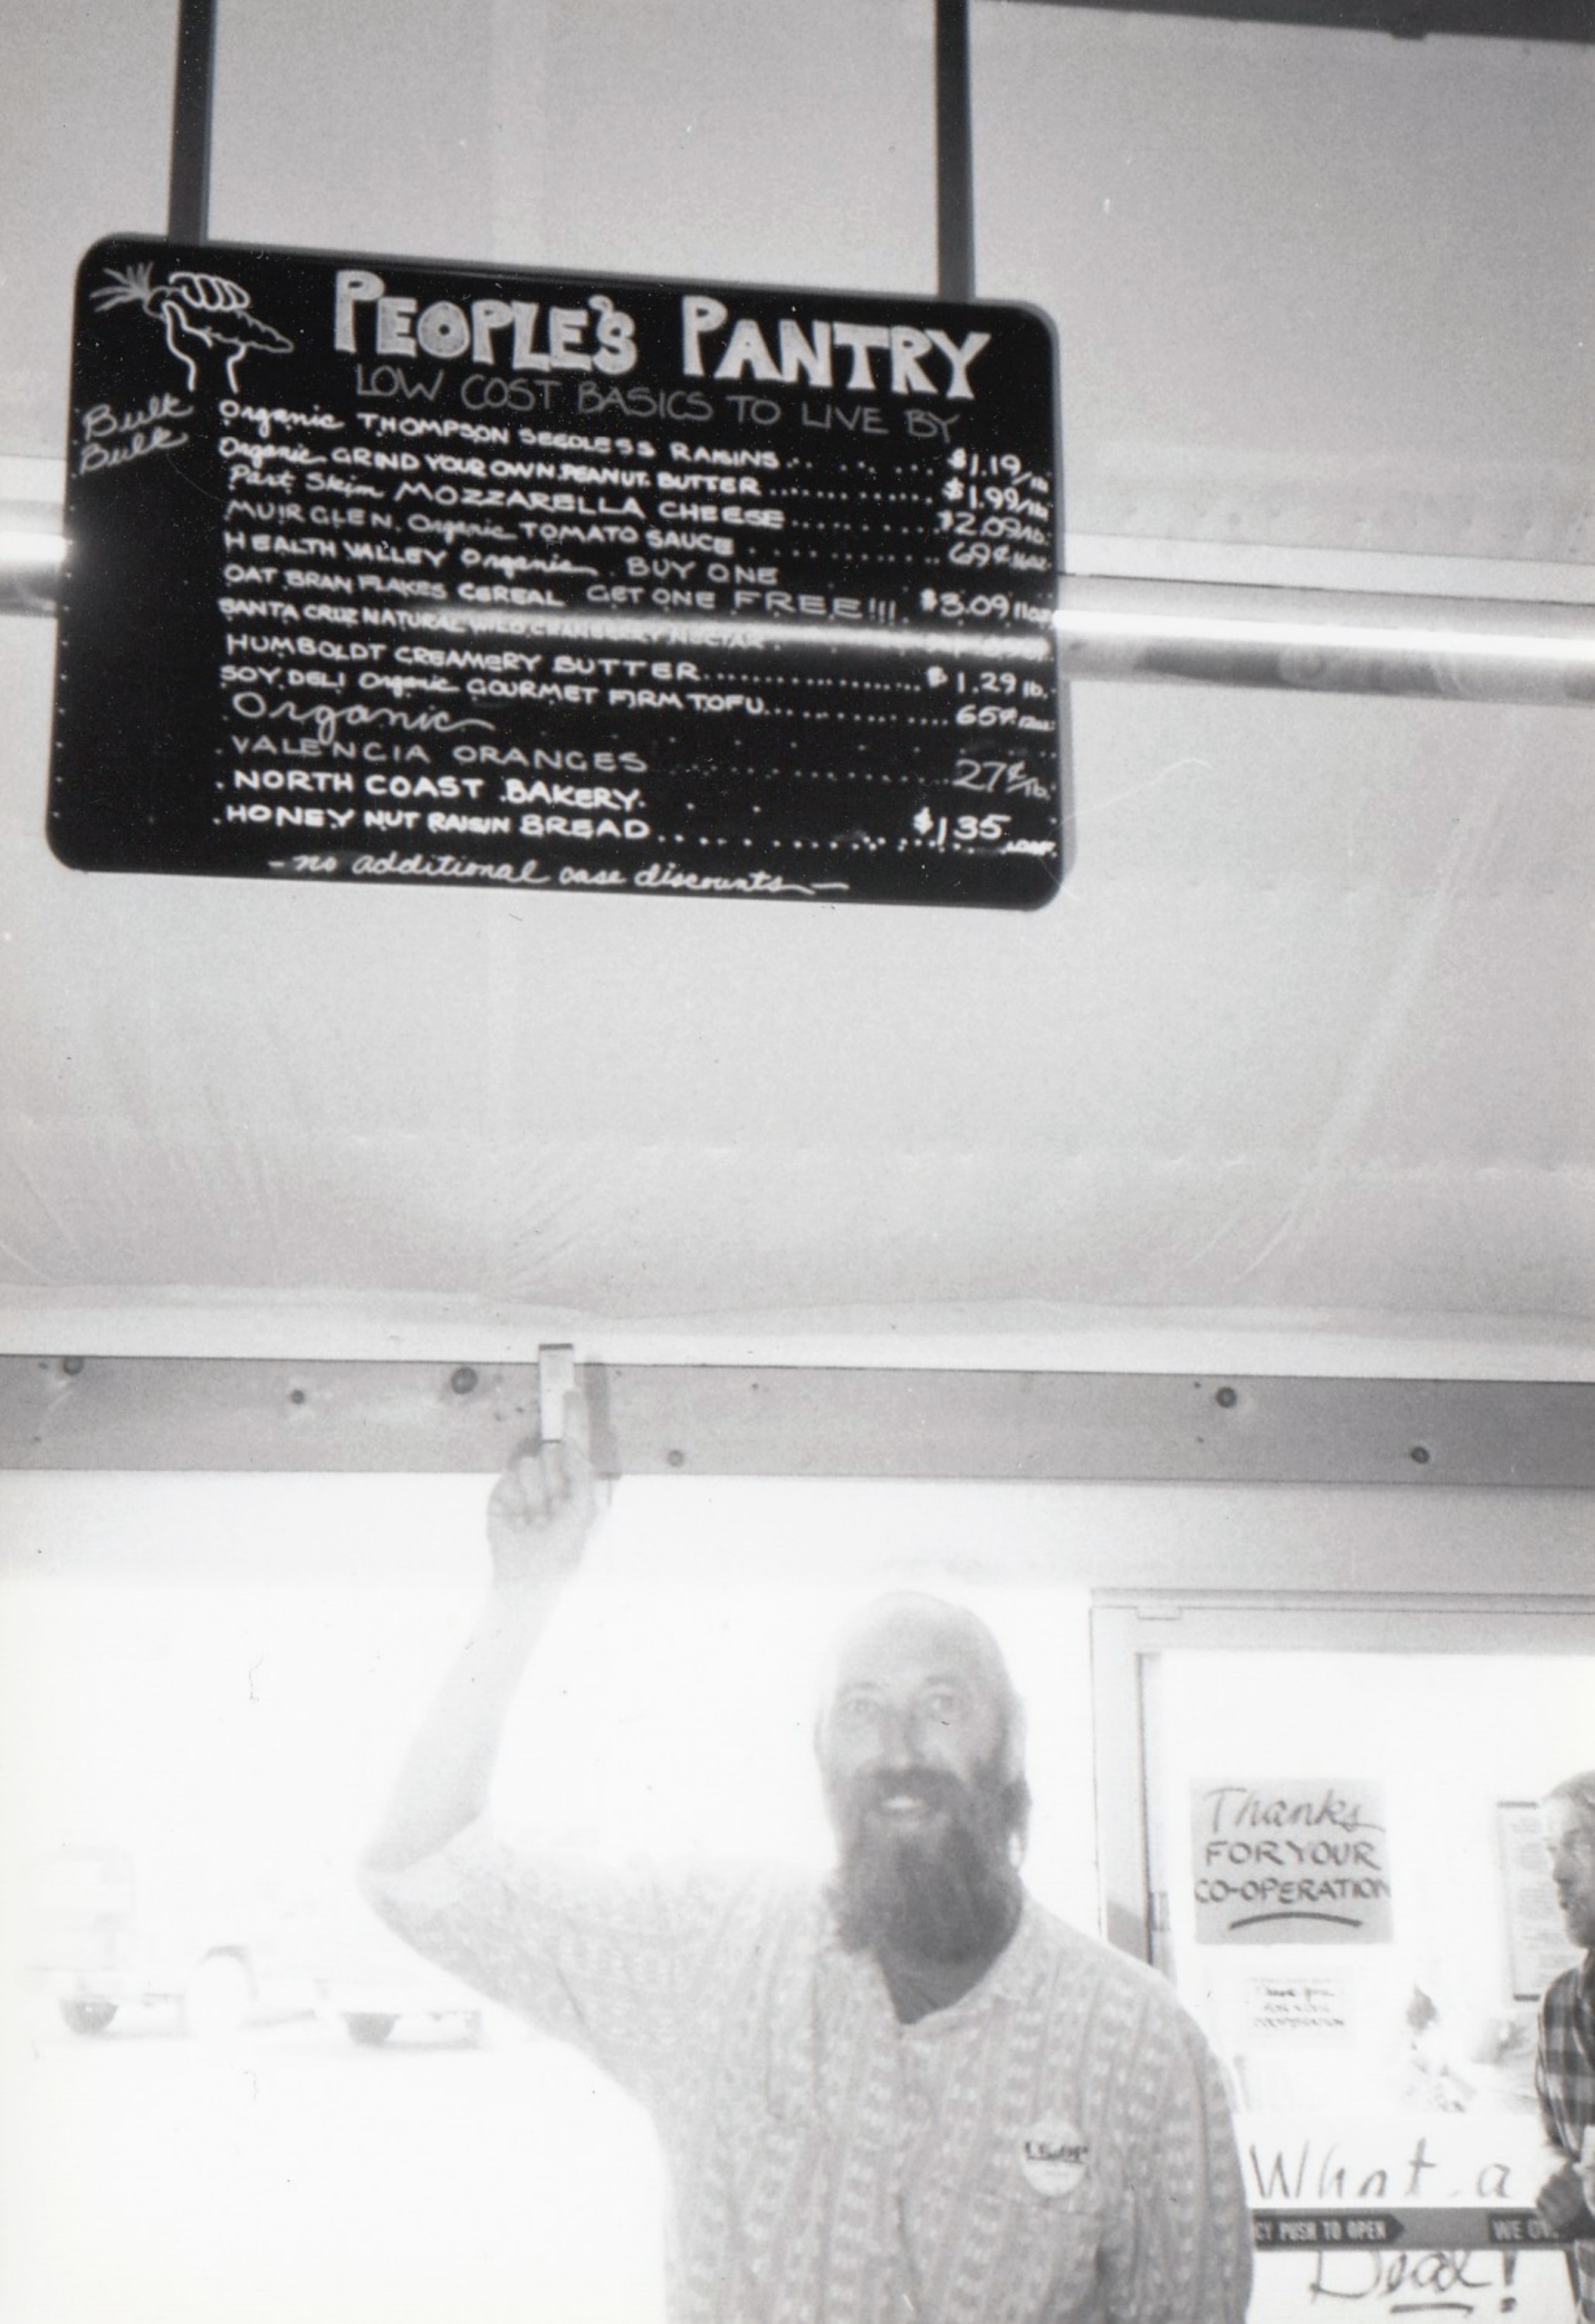 PEOPLE'S PANTRY
LOW COST BASICS TO LIVE BY
Bulk Organic THOMPSON SEEDLESS RAISINS $1.19/lb
Bulk Organic GRIND YOUR OWN PEANUT BUTTER $1.99/lb.
Part Skim MOZZARELLA CHEESE $2.09/lb.
MUIR GLEN Organic TOMATO SAUCE 69¢
HEALTH VALLEY Organic BUY ONE
OAT BRAN FLAKES CEREAL GET ONE FREE!!! $3.09
SANTA CRUZ NATURAL WILD CRANBERRY NECTAR
HUMBOLDT CREAMERY BUTTER $1.29 lb.
SOY DELI Organic GOURMET FIRM TOFU 65¢
Organic
VALENCIA ORANGES 27¢/lb.
NORTH COAST BAKERY
HONEY NUT RAISIN BREAD $1.35 LOAF
- no additional case discounts -
Thanks
FOR YOUR
CO-OPERATION
What a
CY PUSH TO OPEN
Deal!